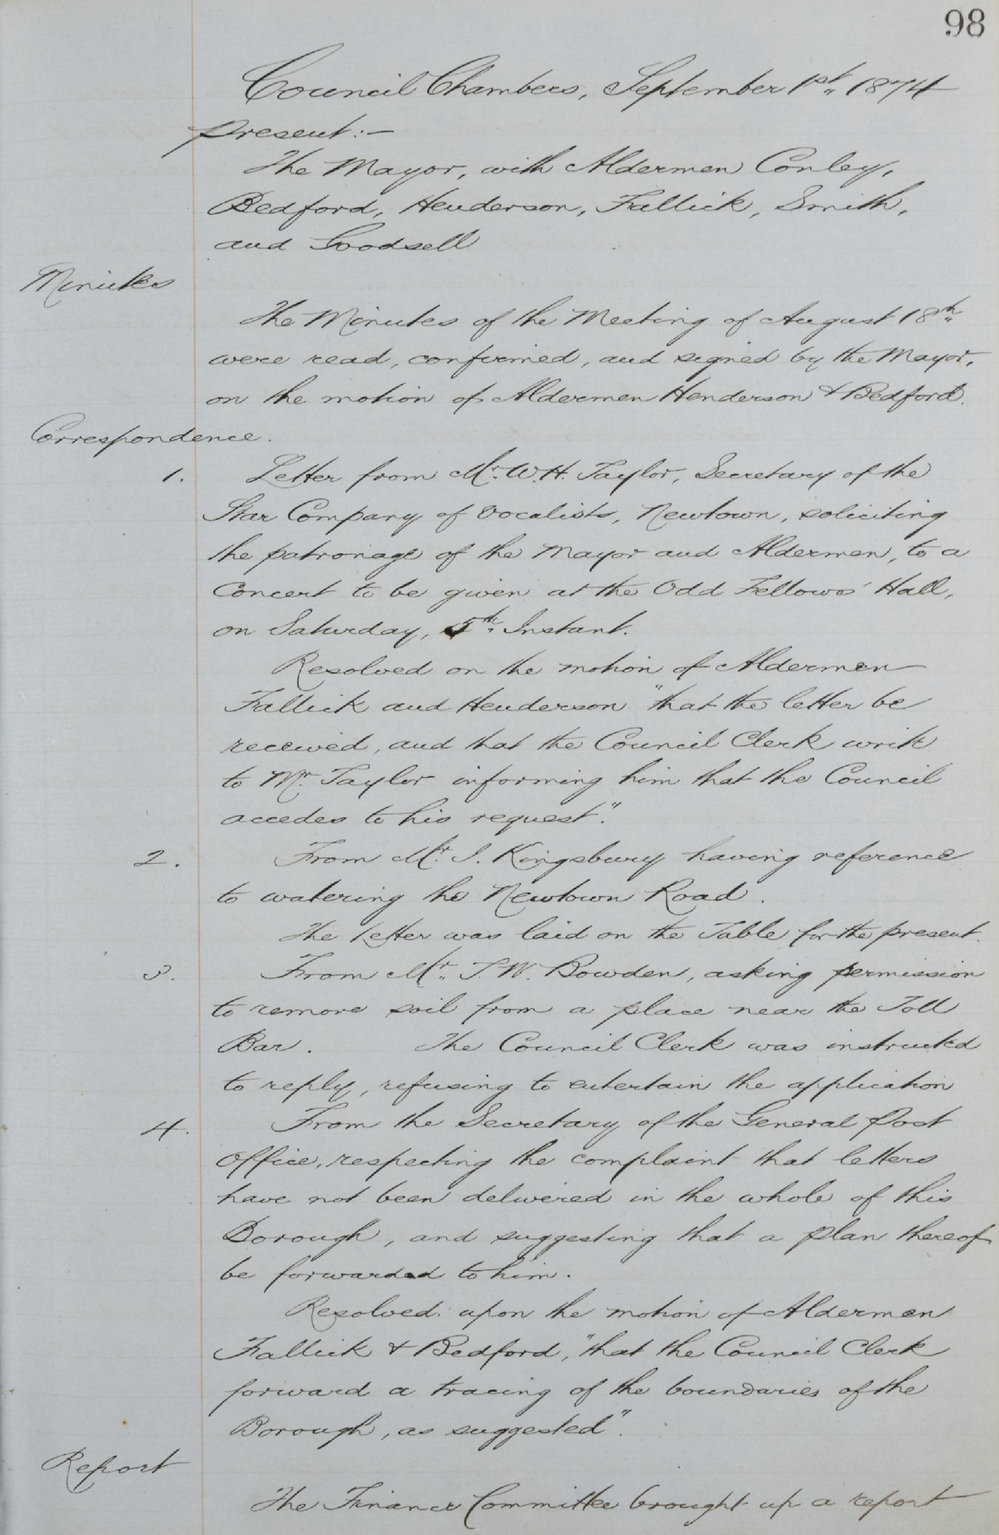 98
Council Chambers, September 1st, 1874
Present:-
The Mayor, with Aldermen Conley,
Bedford, Henderson, Fallick, Smith,
and Goodsell
Minutes
The Minutes of the Meeting of August 18th
were read, confirmed, and signed by the Mayor,
on the motion of Aldermen Henderson & Bedford.
Correspondence.
1. Letter from Mr. W. H. Taylor, Secretary of the
Star Company of Vocalists, Newtown, soliciting
the patronage of the Mayor and Aldermen, to a
Concert to be given at the Odd Fellows' Hall,
on Saturday, 5th Instant.
Resolved on the motion of Aldermen
Fallick and Henderson "that the letter be
received, and that the Council Clerk write
to Mr. Taylor informing him that the Council
accedes to his request".
2. From Mr. I. Kingsbury having reference
to watering the Newtown Road.
The Letter was laid on the Table for the present.
3. From Mr. T. W. Bowden, asking permission
to remove soil from a place near the Toll
Bar. The Council Clerk was instructed
to reply, refusing to entertain the application
4. From the Secretary of the General Post
Office, respecting the complaint that letters
have not been delivered in the whole of this
Borough, and suggesting that a plan thereof
be forwarded to him.
Resolved upon the motion of Aldermen
Fallick & Bedford, "that the Council Clerk
forward a tracing of the boundaries of the
Borough, as suggested".
Report
The Finance Committee brought up a report